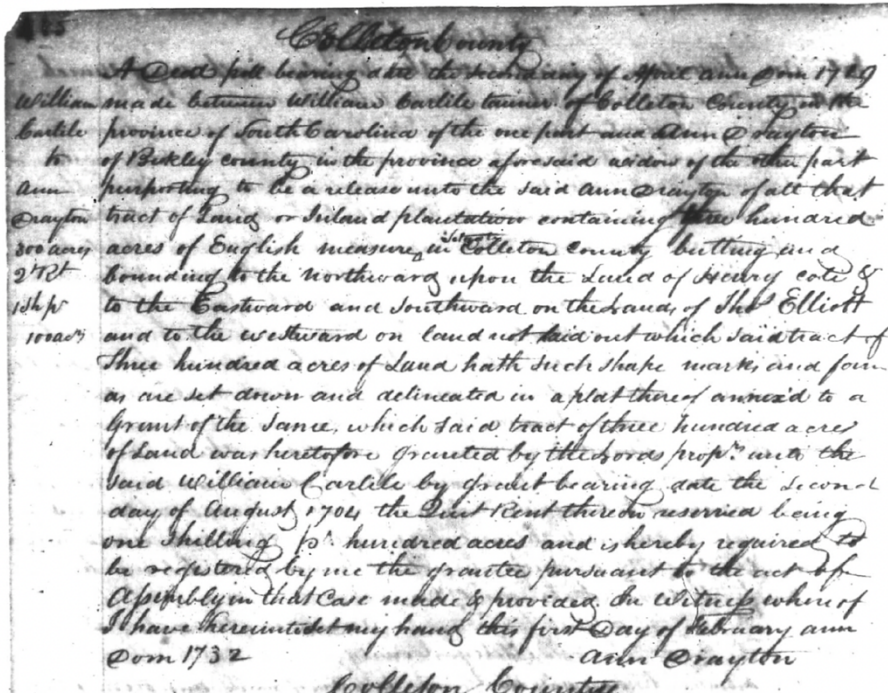 Colleton County
A Deed poll bearing date the second day of April ann Dom 1729
William made between William Carlile tanner of Colleton County in the
Carlile province of South Carolina of the one part and Ann Drayton
to of Berkley county in the province aforesaid widow of the other part
Ann purporting to be a release unto the said Ann Drayton of all that
Drayton tract of Land or Inland plantation containing three hundred
300 acres acres of English measure in Colleton county butting and
2d Rt bounding to the northward upon the Land of Henry cote &
1 Sh pr to the Eastward and Southward on the Lands of Thos Elliott
100 acrs and to the westward on land not laid out which said tract of
Three hundred acres of Land hath such shape marks and form
as are set down and delineated in a plat thereof annex'd to a
Grant of the Same, which said tract of three hundred acres
of Land was heretofore granted by the Lords propts unto the
said William Carlile by grant bearing date the second
day of August 1704 the Quit Rent thereon reserved being
one Shilling pr hundred acres and is hereby required to
be registered by me the grantee pursuant to the act of
Assembly in that Case made & provided In Witness where of
I have hereunto Set my hand this first Day of February ann
Dom 1732 Ann Drayton
Colleton County